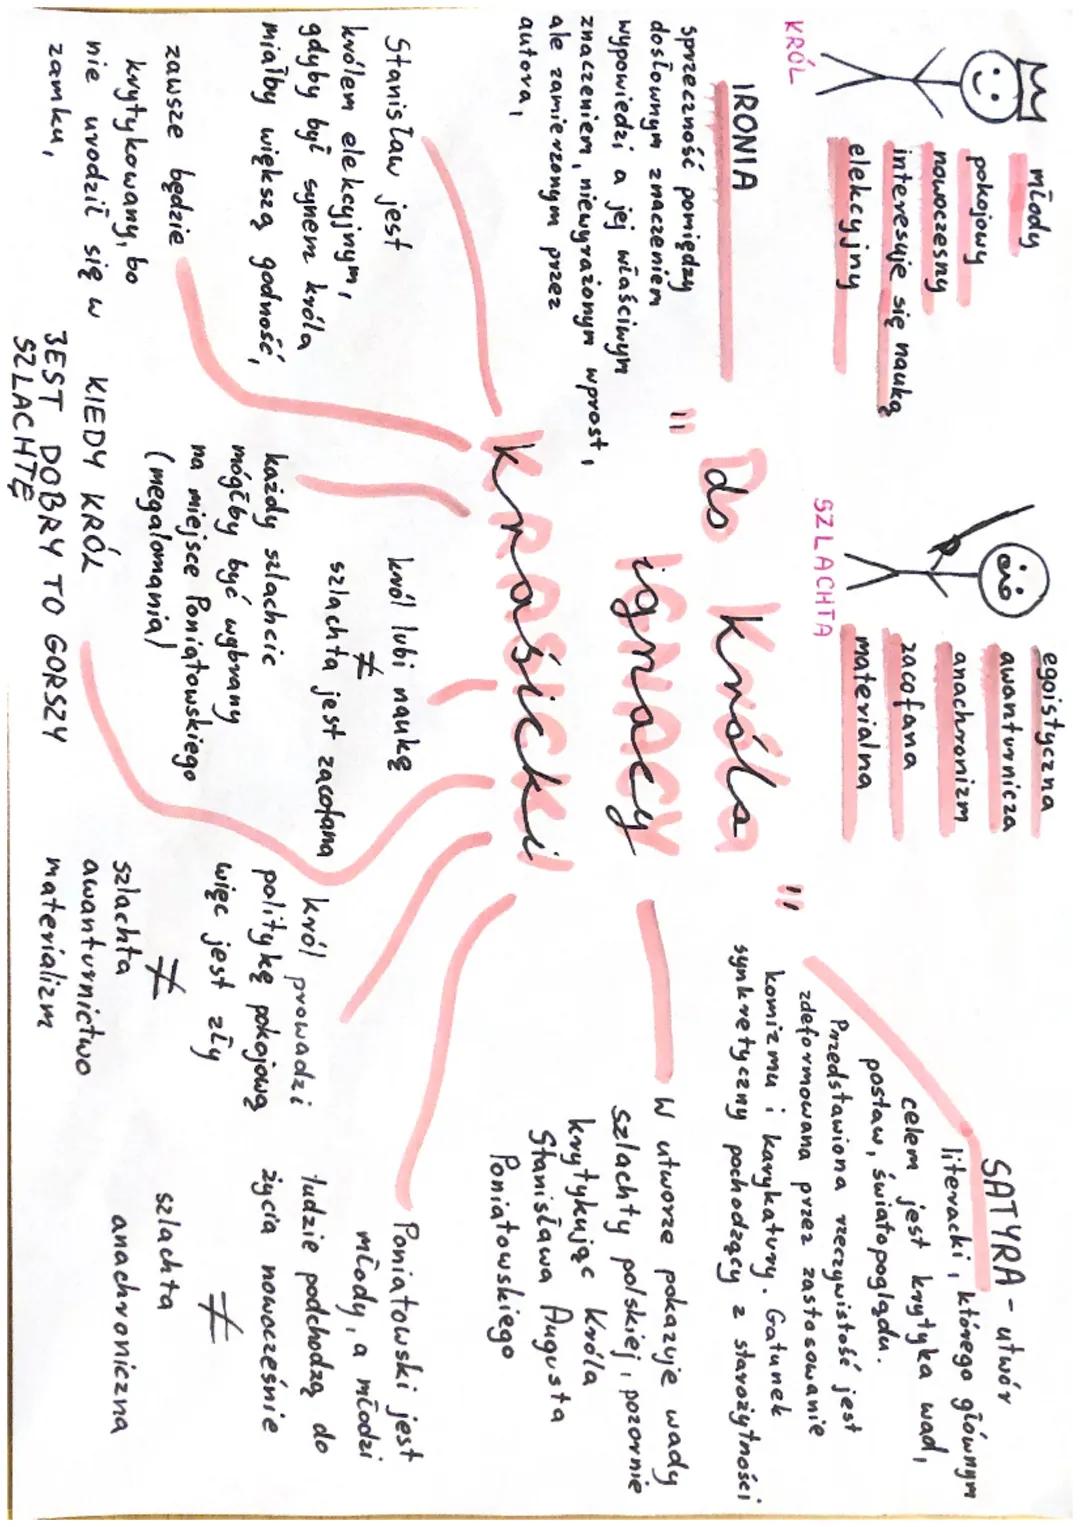 KRÓL
młody
pokojowy
nowoczesny
interesuje się nauką
elekcyjny
SZLACHTA
egoistyczna
awanturnicza
anachronizm
zacofana
materialna
SATYRA - utwór
literacki, którego głównym
celem jest krytyka wad,
postaw, światopoglądu.
Przedstawiona rzeczywistość jest
zdeformowana przez zastosowanie
komizmu i karykatury. Gatunek
synkretyczny pochodzący z starożytności
IRONIA
sprzeczność pomiędzy
dosłownym znaczeniem
wypowiedzi a jej właściwym
znaczeniem, niewyrażonym wprost,
ale zamierzonym przez
autora,
"Do Króla"
IGNACY
ignacy
KRASICKI
krasicki
W utworze pokazuje wady
szlachty polskiej, pozornie
krytykując Króla
Stanisława Augusta
Poniatowskiego
Stanisław jest
królem elekcyjnym,
gdyby był synem króla
miałby większą godność,
zawsze będzie
krytykowany, bo
nie urodził się w
zamku,
każdy szlachcic
mógłby być wybrany
na miejsce Poniatowskiego
(megalomania)
król lubi naukę
≠
szlachta jest zacofana
KIEDY KRÓL
JEST DOBRY TO GORSZY
SZLACHTĘ
król prowadzi
politykę pokojową
więc jest zły
≠
szlachta
awanturnictwo
materializm
Poniatowski jest
młody, a młodzi
ludzie podchodzą do
życia nowocześnie
≠
szlachta
anachroniczna